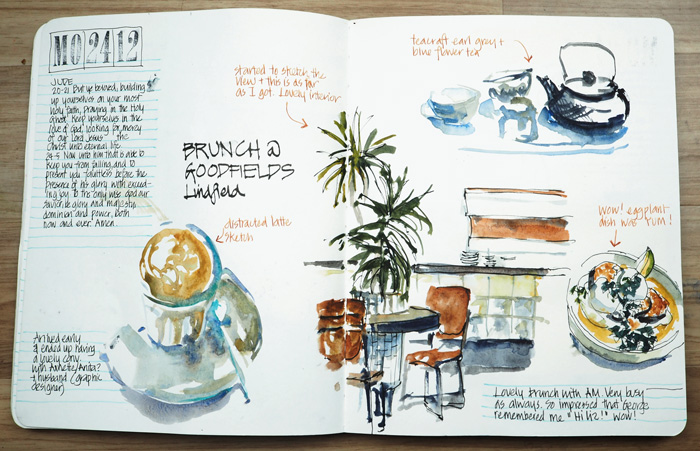 MO 24 12
JUDE
20-21 But ye beloved, building
up yourselves on your most
holy faith, praying in the Holy
Ghost, Keep yourselves in the
love of God, looking for mercy
of our Lord Jesus
Christ unto eternal life
24-5 Now unto him that is able to
keep you from falling, and to
present you faultless before the
presence of his glory with exceed-
ing joy. To the only wise God our
Saviour be glory and majesty,
dominion and power, both
now and ever. Amen.
started to sketch the
view + this is as far
as I got. Lovely interior
BRUNCH @
GOODFIELDS
Lindfield
distracted latte
sketch
Arrived early
& ended up having
a lovely conv.
with Annette/Anita?
+ husband (graphic
designer)
teacraft earl grey +
blue flower tea
Wow! eggplant
dish was YUM!
Lovely Brunch with AM. Very busy
as always. So impressed that George
remembered me "Hi Liz!" Wow!